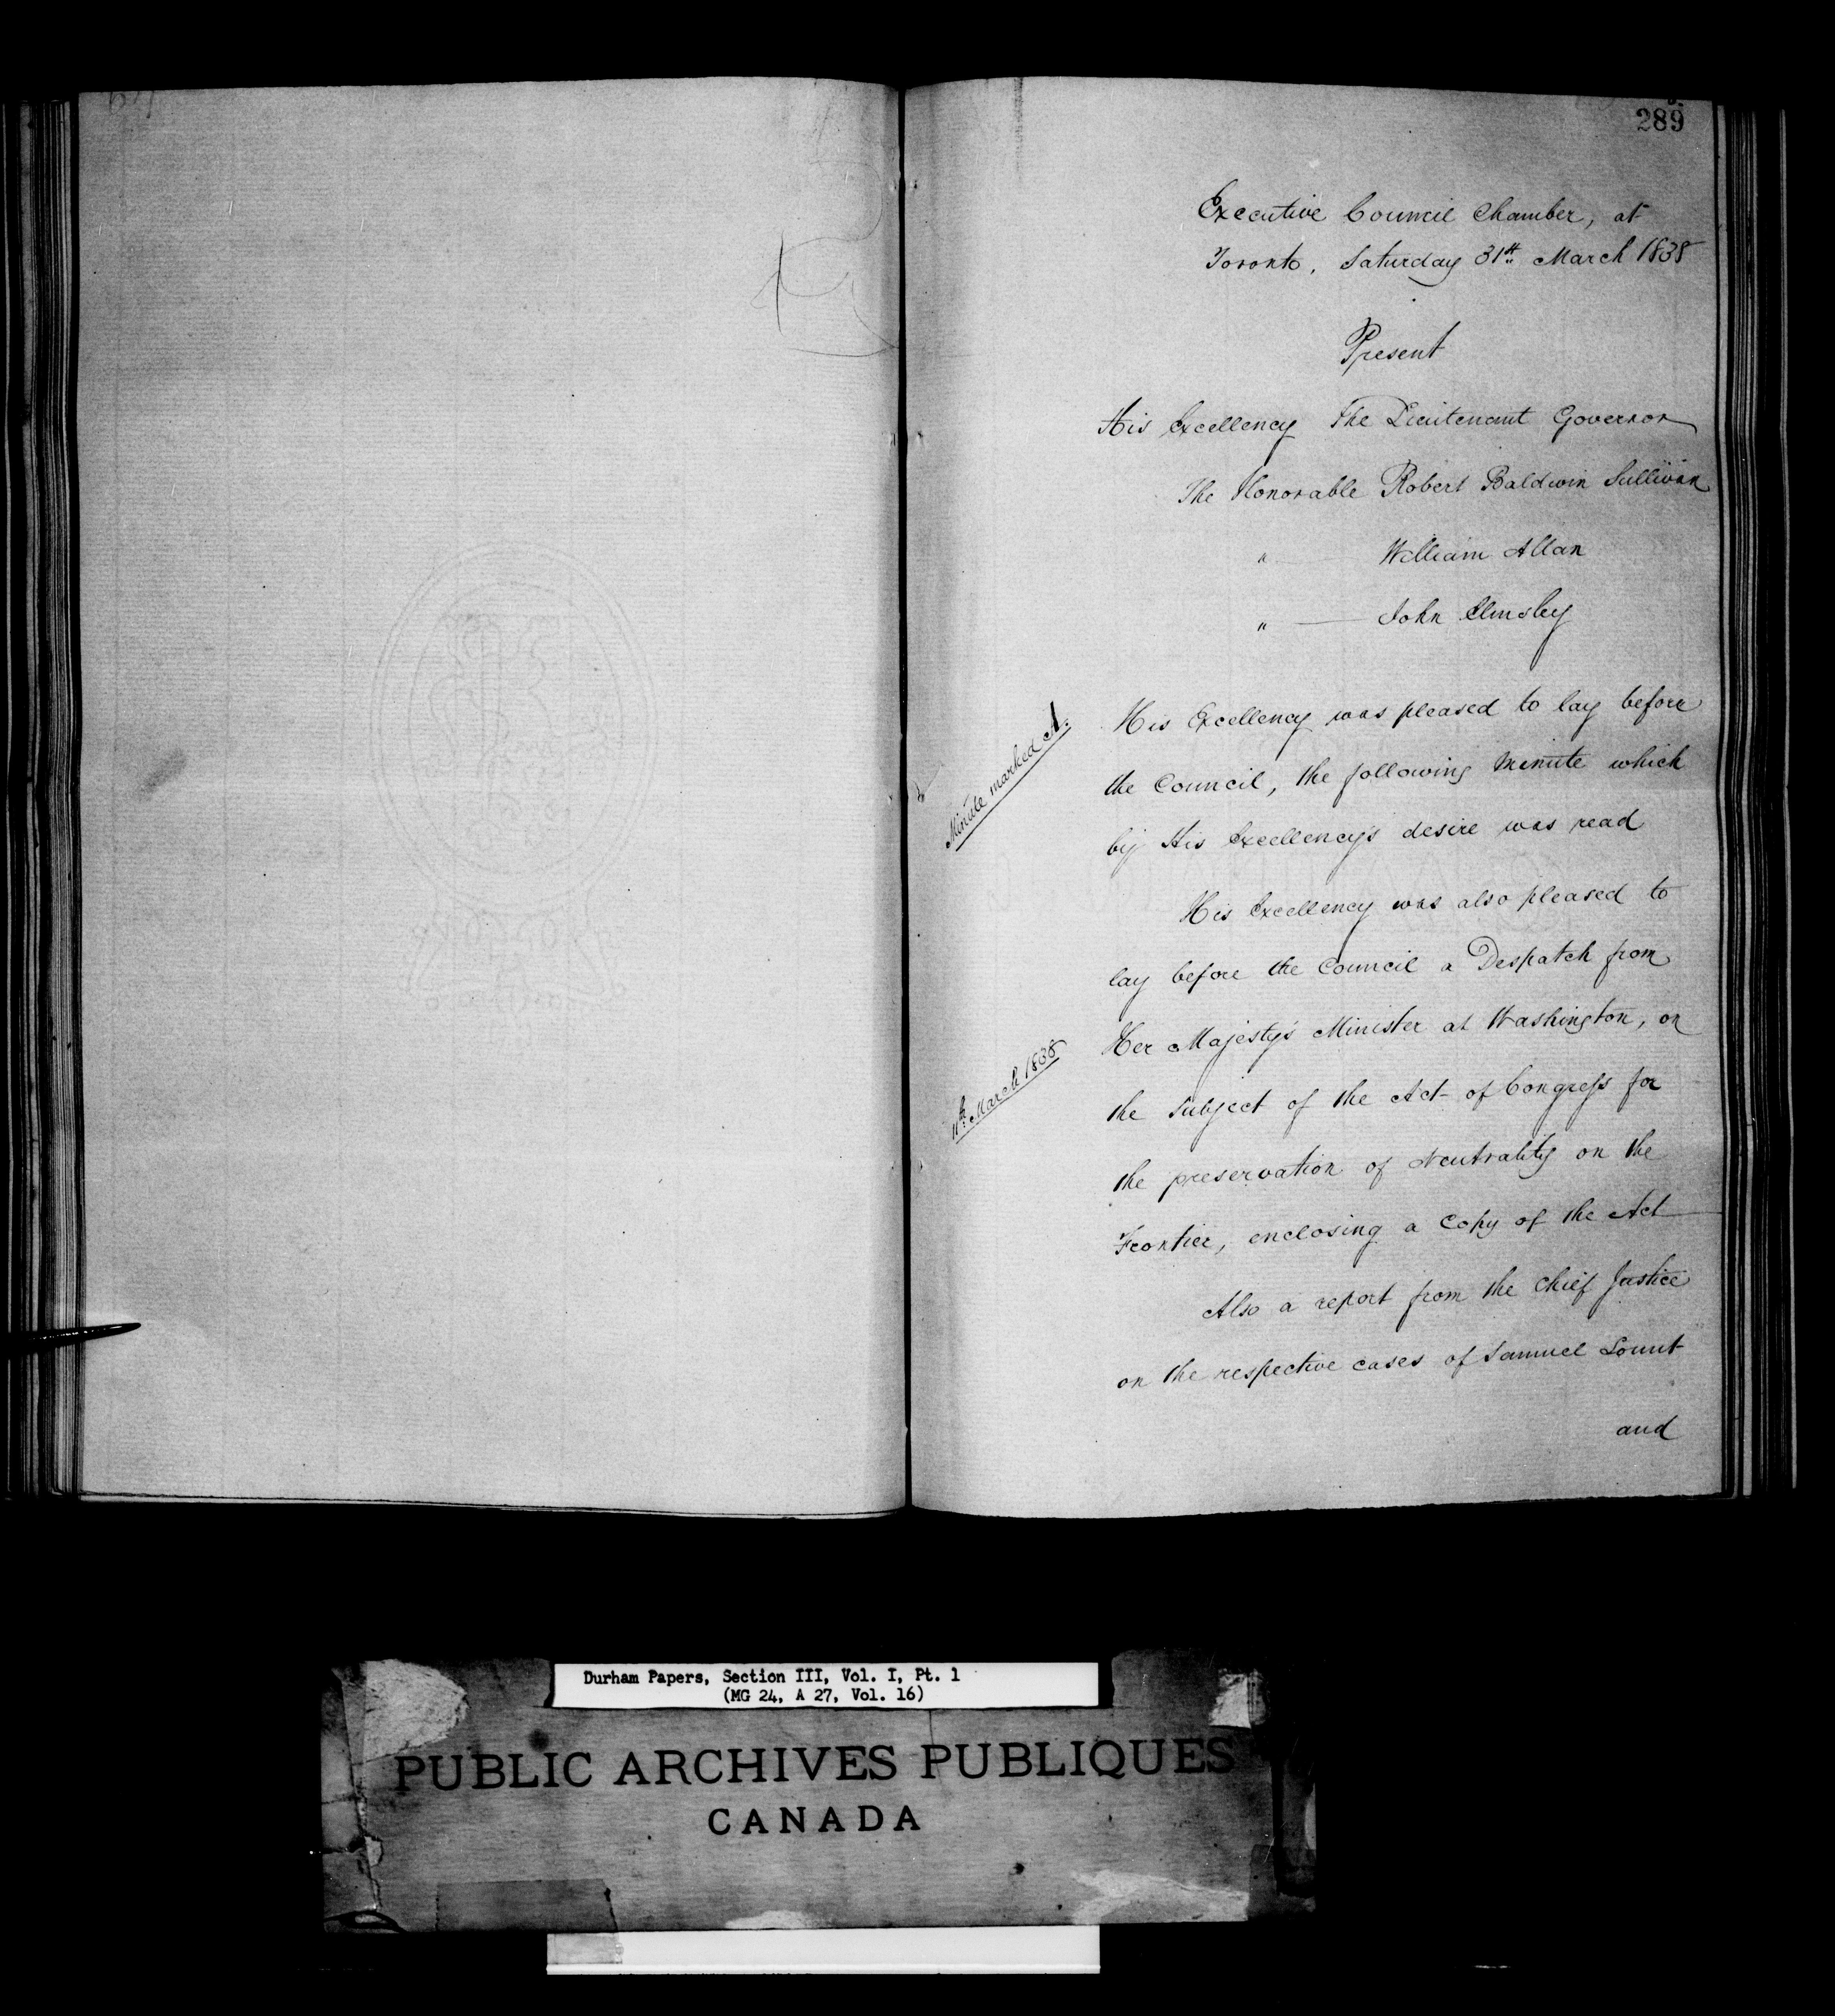 289
Executive Council Chamber, at
Toronto, Saturday 31st March 1838
Present
His Excellency The Lieutenant Governor
The Honorable Robert Baldwin Sullivan
" — William Allan
" — John Elmsley
Minute marked A.
His Excellency was pleased to lay before
the Council, the following Minute which
by His Excellency's desire was read
His Excellency was also pleased to
lay before the Council a Despatch from
11th March 1838
Her Majesty's Minister at Washington, on
the Subject of the Act of Congress for
the preservation of Neutrality on the
Frontier, enclosing a Copy of the Act
Also a report from the Chief Justice
on the respective cases of Samuel Lount
and
Durham Papers, Section III, Vol. I, Pt. 1
(MG 24, A 27, Vol. 16)
PUBLIC ARCHIVES PUBLIQUES
CANADA